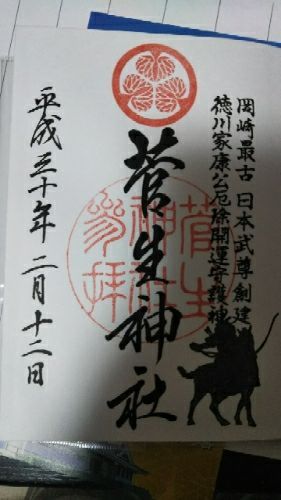 岡崎最古 日本武尊創建
徳川家康公厄除開運守護神
菅生神社
菅生神社参拝
平成三十年 二月十二日